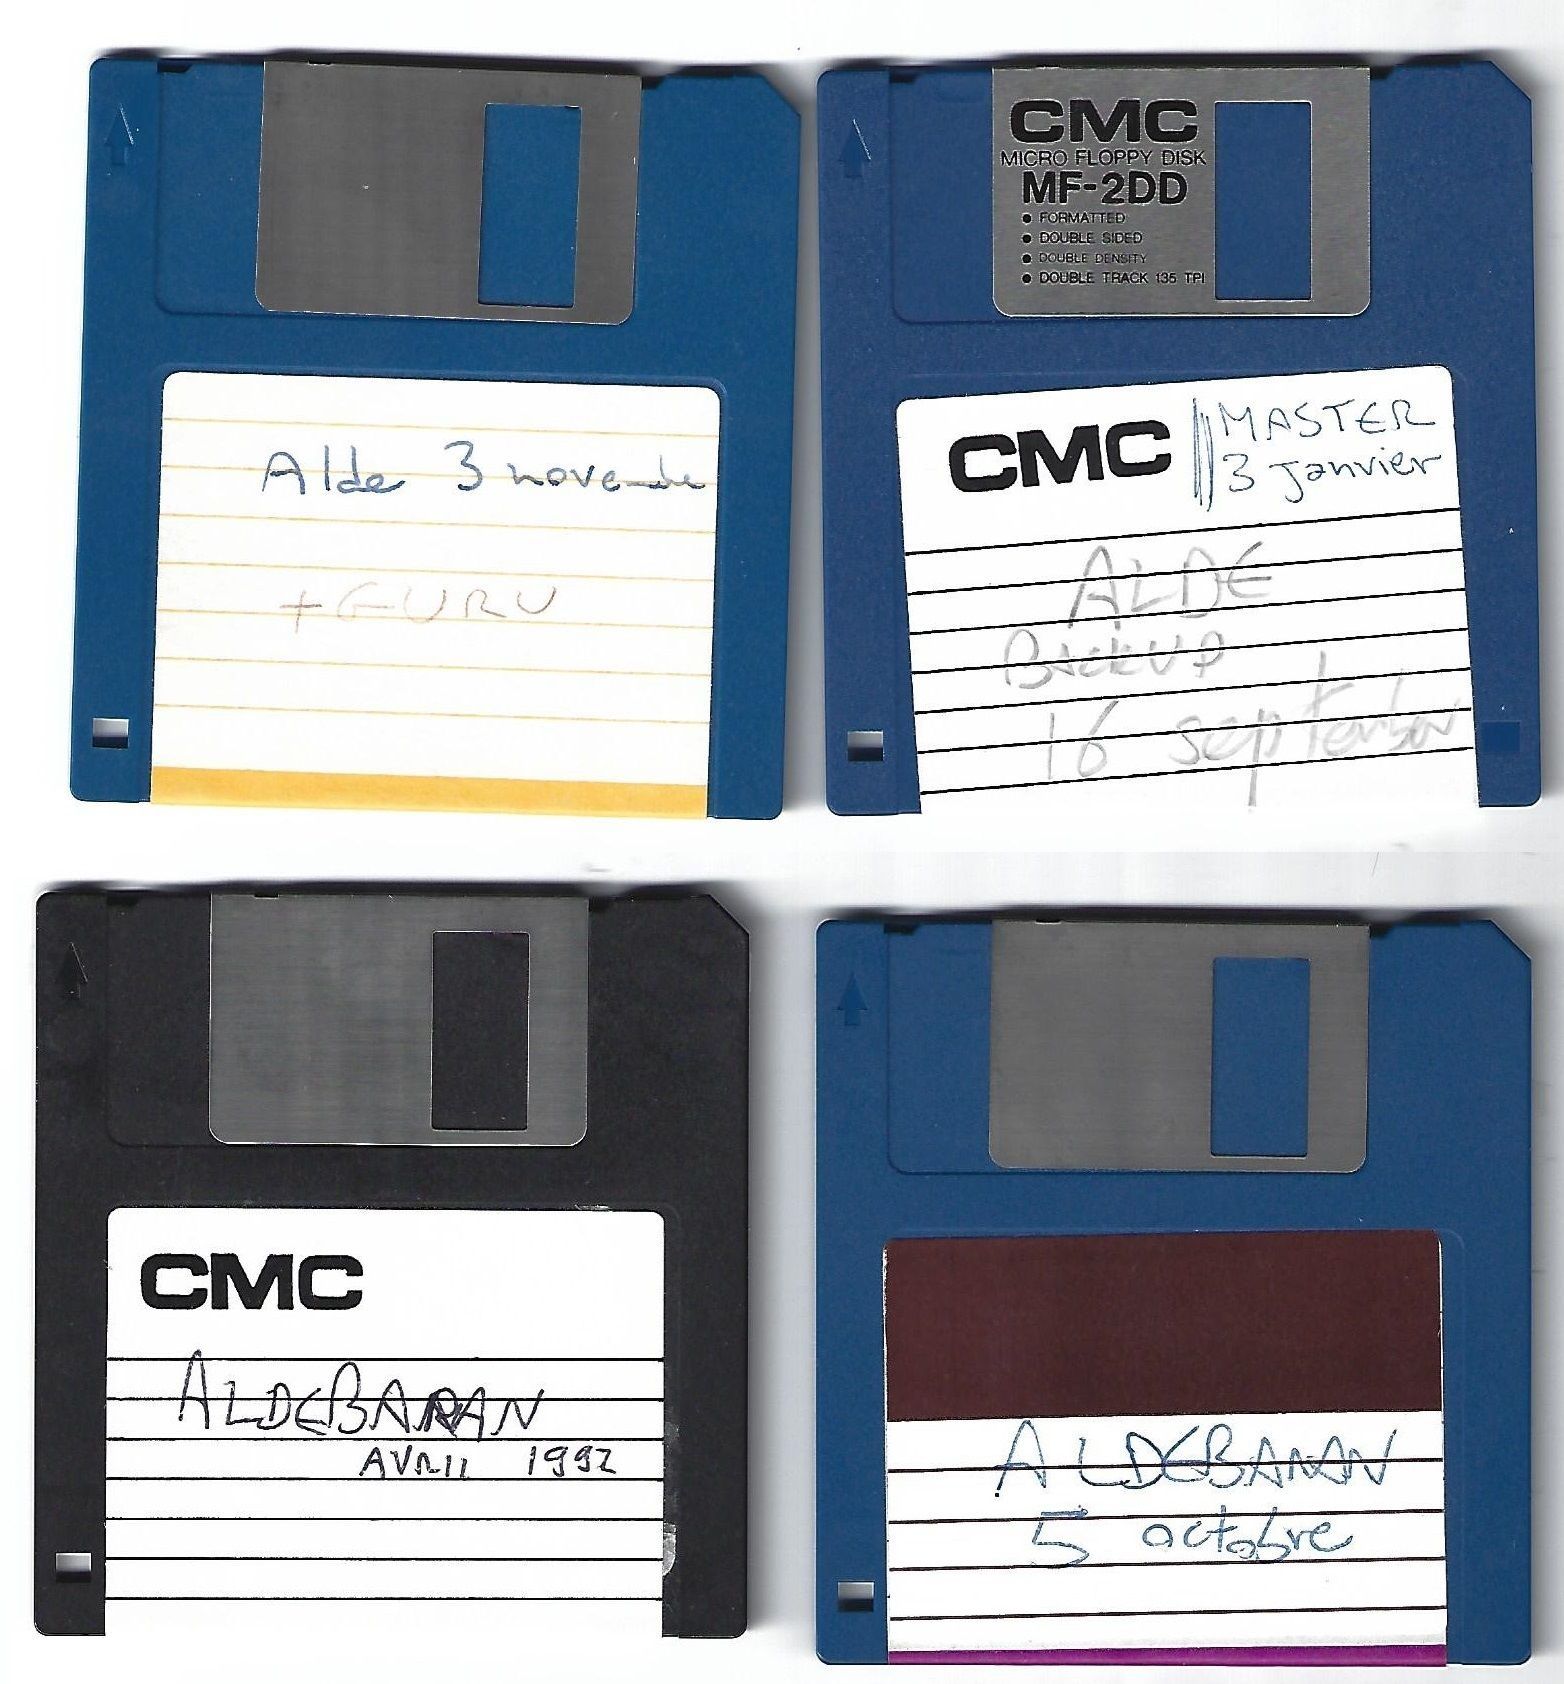 Alde 3 novembre
+ GURU
CMC
MICRO FLOPPY DISK
MF-2DD
● FORMATTED
● DOUBLE SIDED
● DOUBLE DENSITY
● DOUBLE TRACK 135 TPI
CMC
MASTER
3 Janvier
ALDE
BACKUP
16 september
CMC
ALDEBARAN
AVRIL 1992
ALDEBARAN
5 octobre